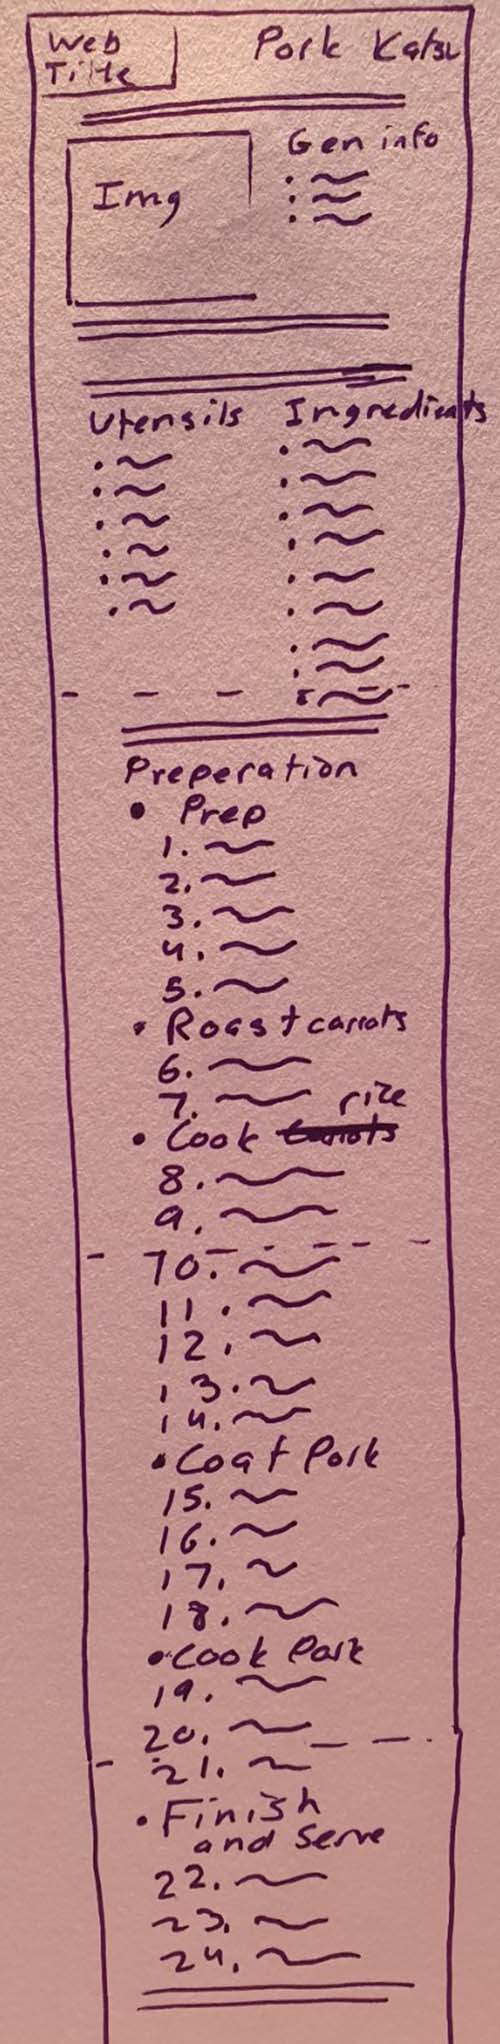 Web
Title
Pork Katsu
Img
Gen info
Utensils
Ingredients
Preperation
Prep
1.
2.
3.
4.
5.
Roast carrots
6.
7.
rice
Cook carrots
8.
9.
10.
11.
12.
13.
14.
Coat Pork
15.
16.
17.
18.
Cook Pork
19.
20.
21.
Finish
and serve
22.
23.
24.